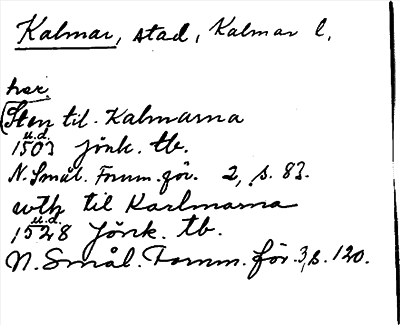 Kalmar, stad, Kalmar l.
her.
(Sten til. Kalmarna
u.d.
1503 Jönk. tb.
N. Smål. Fornm.för. 2, s. 83.
wth til Karlmarna
u.d.
1528 Jönk. tb.
N. Smål. Fornm. för. 3, s. 120.